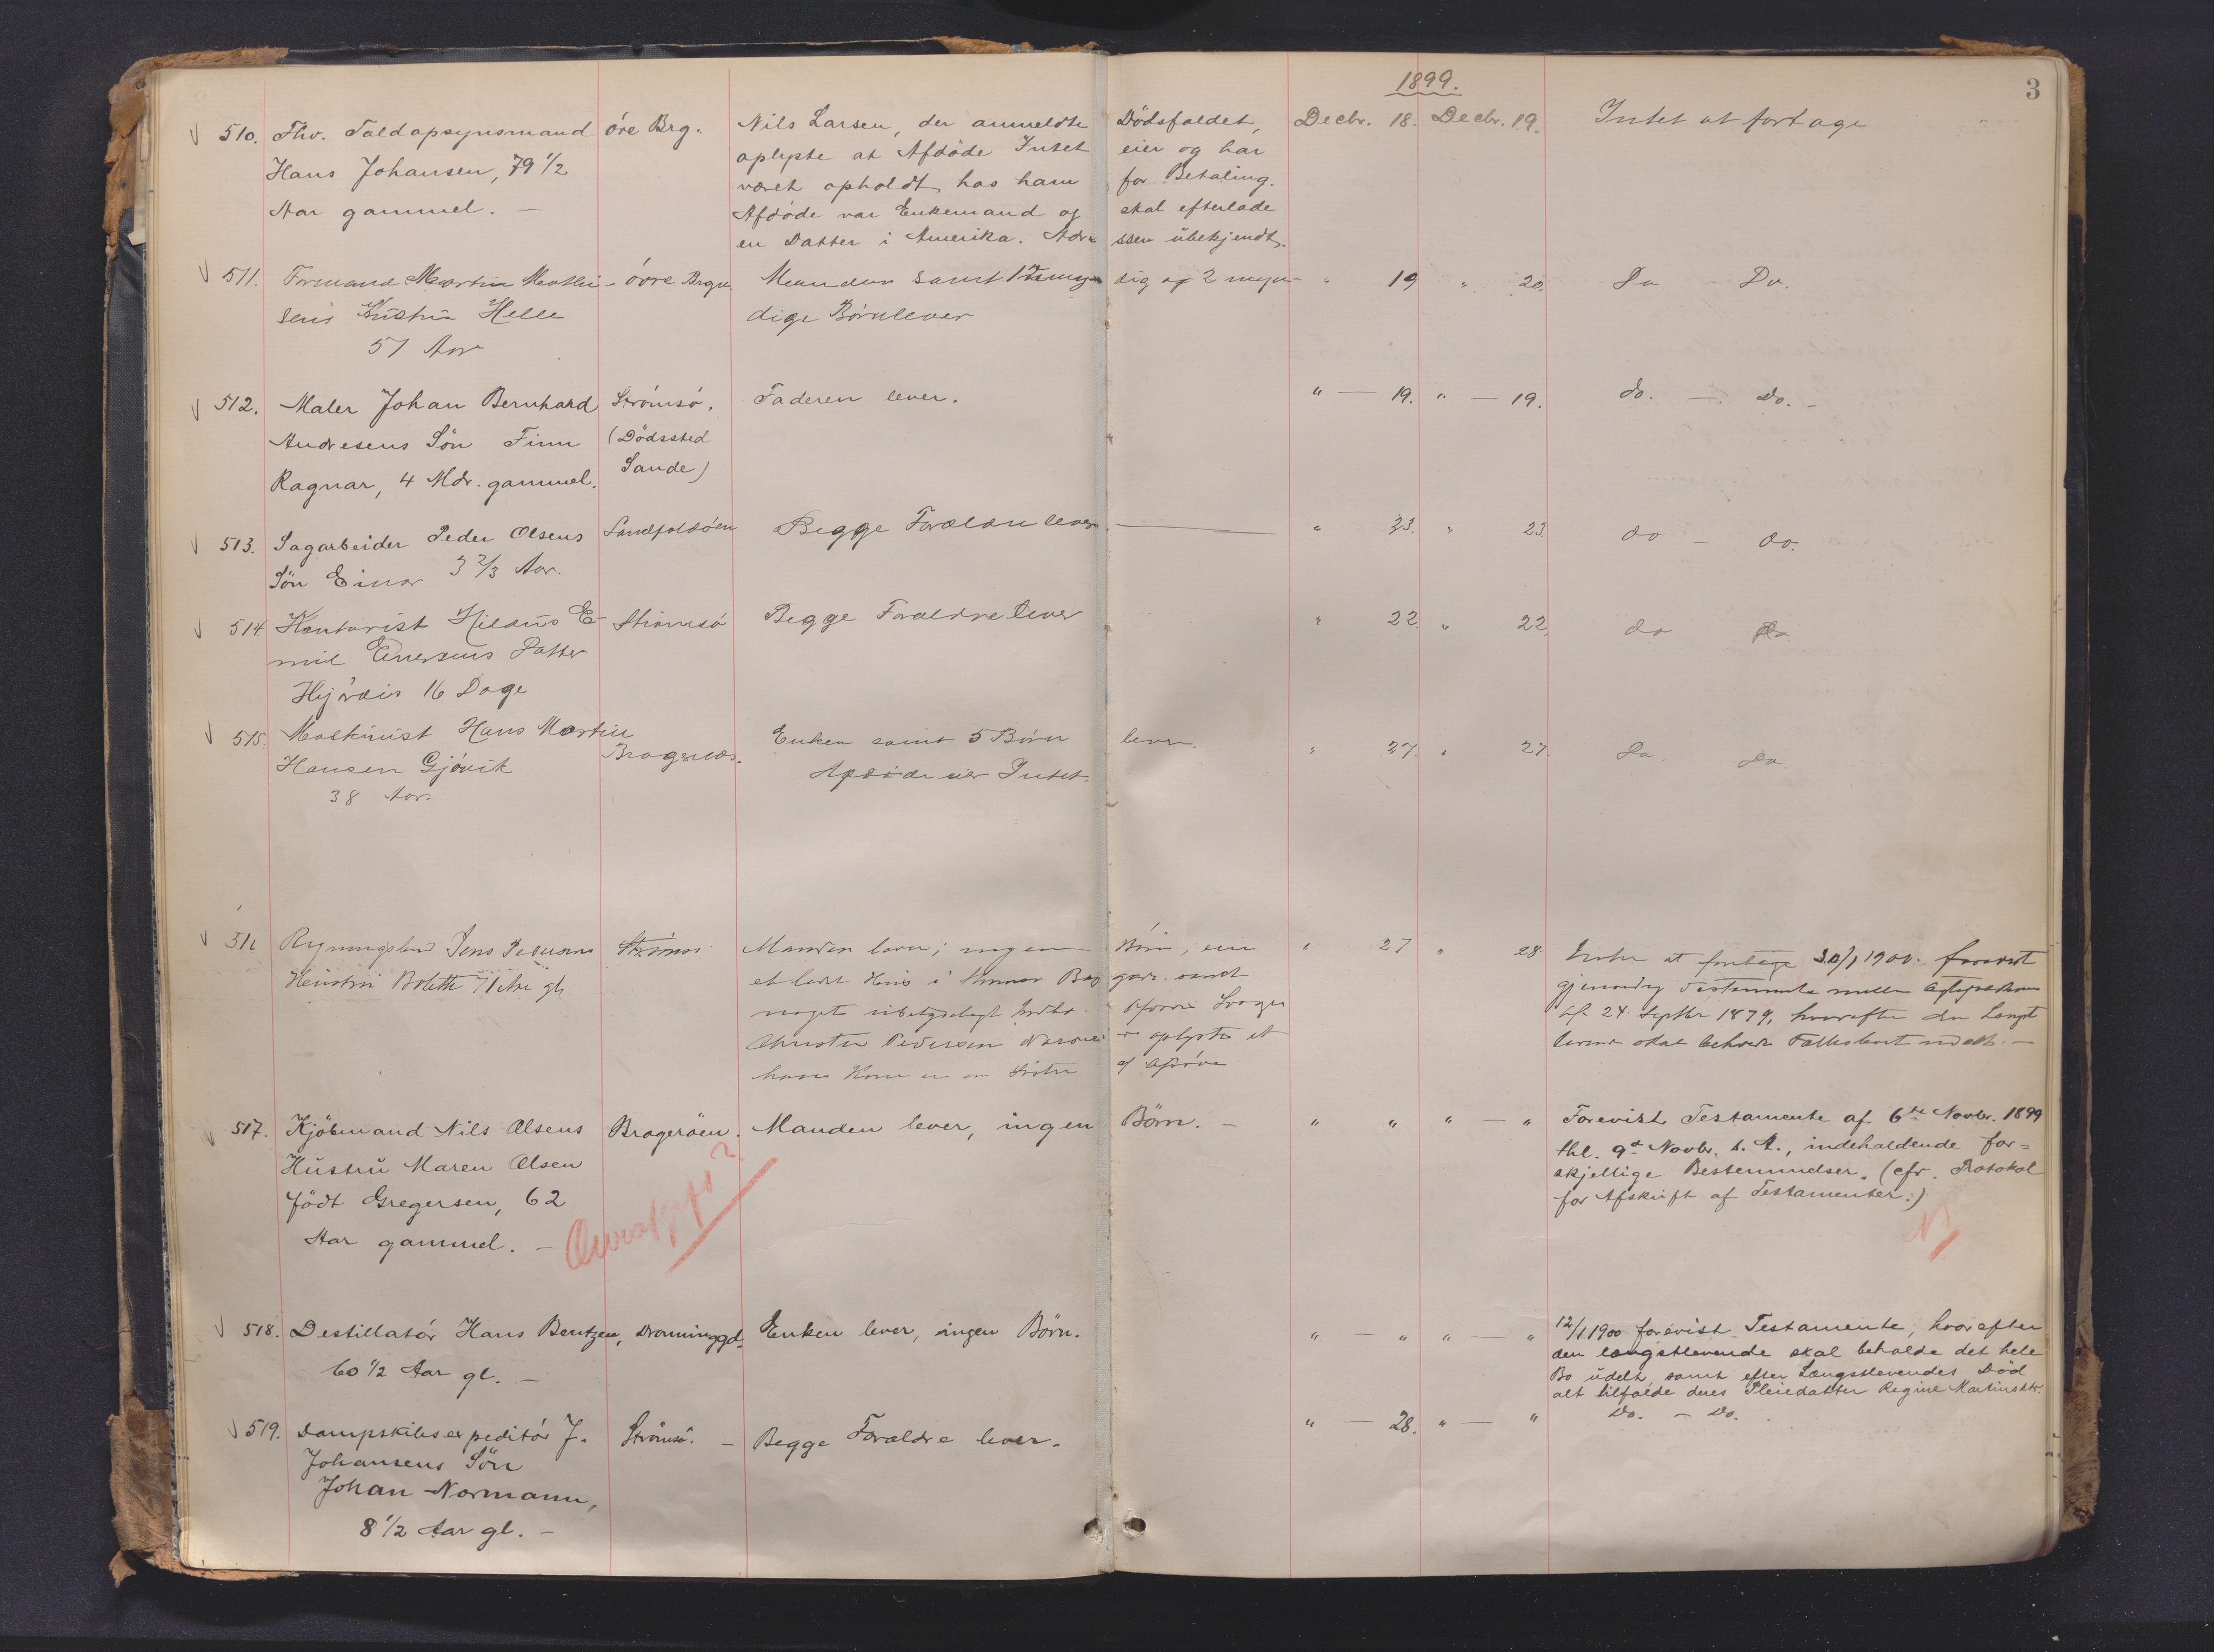 1899.
3
510. Fhv. Toldopsynsmand Øvre Brg. Nils Larsen, der anmeldte Dödsfaldet, Decbr. 18. Decbr. 19. Intet at fortage
Hans Johansen, 79 1/2 oplyste at Afdöde Intet eier og har
Aar gammel. — været opholdt hos ham for Betaling.
Afdöde var Enkemand og skal efterlade
en Datter i Amerika. Adressen ubekjendt.
511. Formand Martin Mathi- Övre Brgn. Manden samt 1 umyndig og 2 myn- " 19 " 20. Do Do.
sens Hustru Helle dige Börn lever
51 Aar
512. Maler Johan Bernhard Strömsö. Faderen lever. " — 19. " — 19. do. — Do. -
Andresens Sön Finn (Dödssted
Ragnar, 4 Mdr. gammel. Sande)
513. Sagarbeider Peder Olsens Begge Forældre lever. " 23. " 23. do - do.
Sön Einar 3 2/3 Aar.
514 Kontorist E- Strömsö Begge Forældre lever " 22. " 22. do do
mil Datter
Hjördis 16 Dage
515. Maskinist Hans Martin Bragernæs. Enken samt 5 Börn lever. " 27. " 27. do do
Hansen Gjövik Afdöde eier Intet.
38 Aar.
516 Jens Pedersens Strömsö Manden lever; ingen Börn; eier " 27 " 28. Intet at fortage 30/1 1900. forevist
Hustru Bolette 71 Aar gl. et lidet Hus i samt gjensidig Testamente mellem Ægtefolkene
noget ubetydeligt Indbo. Afdödes Svoger af 24 Septbr 1879, hvorefter den Længst
Pedersen oplyste at levende skal beholde Fællesboet udelt. —
hans Kone er en Söster af Afdöde
517. Kjöbmand Nils Olsens Bragerøen. Manden lever, ingen Börn. — " " " — " Forevist Testamente af 6te Novbr. 1899
Hustru Maren Olsen thl. 9de Novbr. s. A., indeholdende for=
födt Gregersen, 62 skjellige Bestemmelser. (cfr. Protokol
Aar gammel. — for Afskrift af Testamenter.)
518. Destillatör Hans Bentzen, Dronninggd. Enken lever, ingen Börn. " — " " — " 12/1 1900 forevist Testamente, hvorefter
60 1/2 Aar gl. — den længstlevende skal beholde det hele
Bo udelt, samt efter Længstlevendes Död
alt tilfalde deres Pleiedatter Regine Martinsdtr.
519. Dampskibsexpeditör J. Strömsö. — Begge Forældre lever. " — 28. " — " Do. — Do.
Johansens Sön
Johan Normann,
8 1/2 Aar gl. —